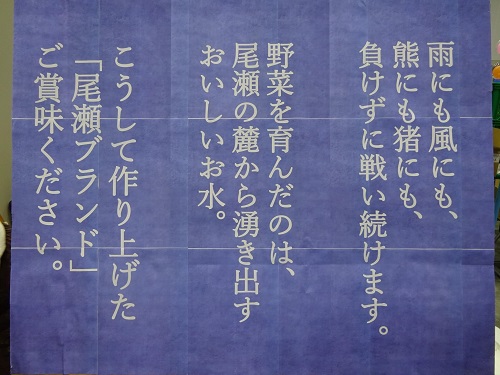 雨にも風にも、
熊にも猪にも、
負けずに戦い続けます。
野菜を育んだのは、
尾瀬の麓から湧き出す
おいしいお水。
こうして作り上げた
「尾瀬ブランド」
ご賞味ください。